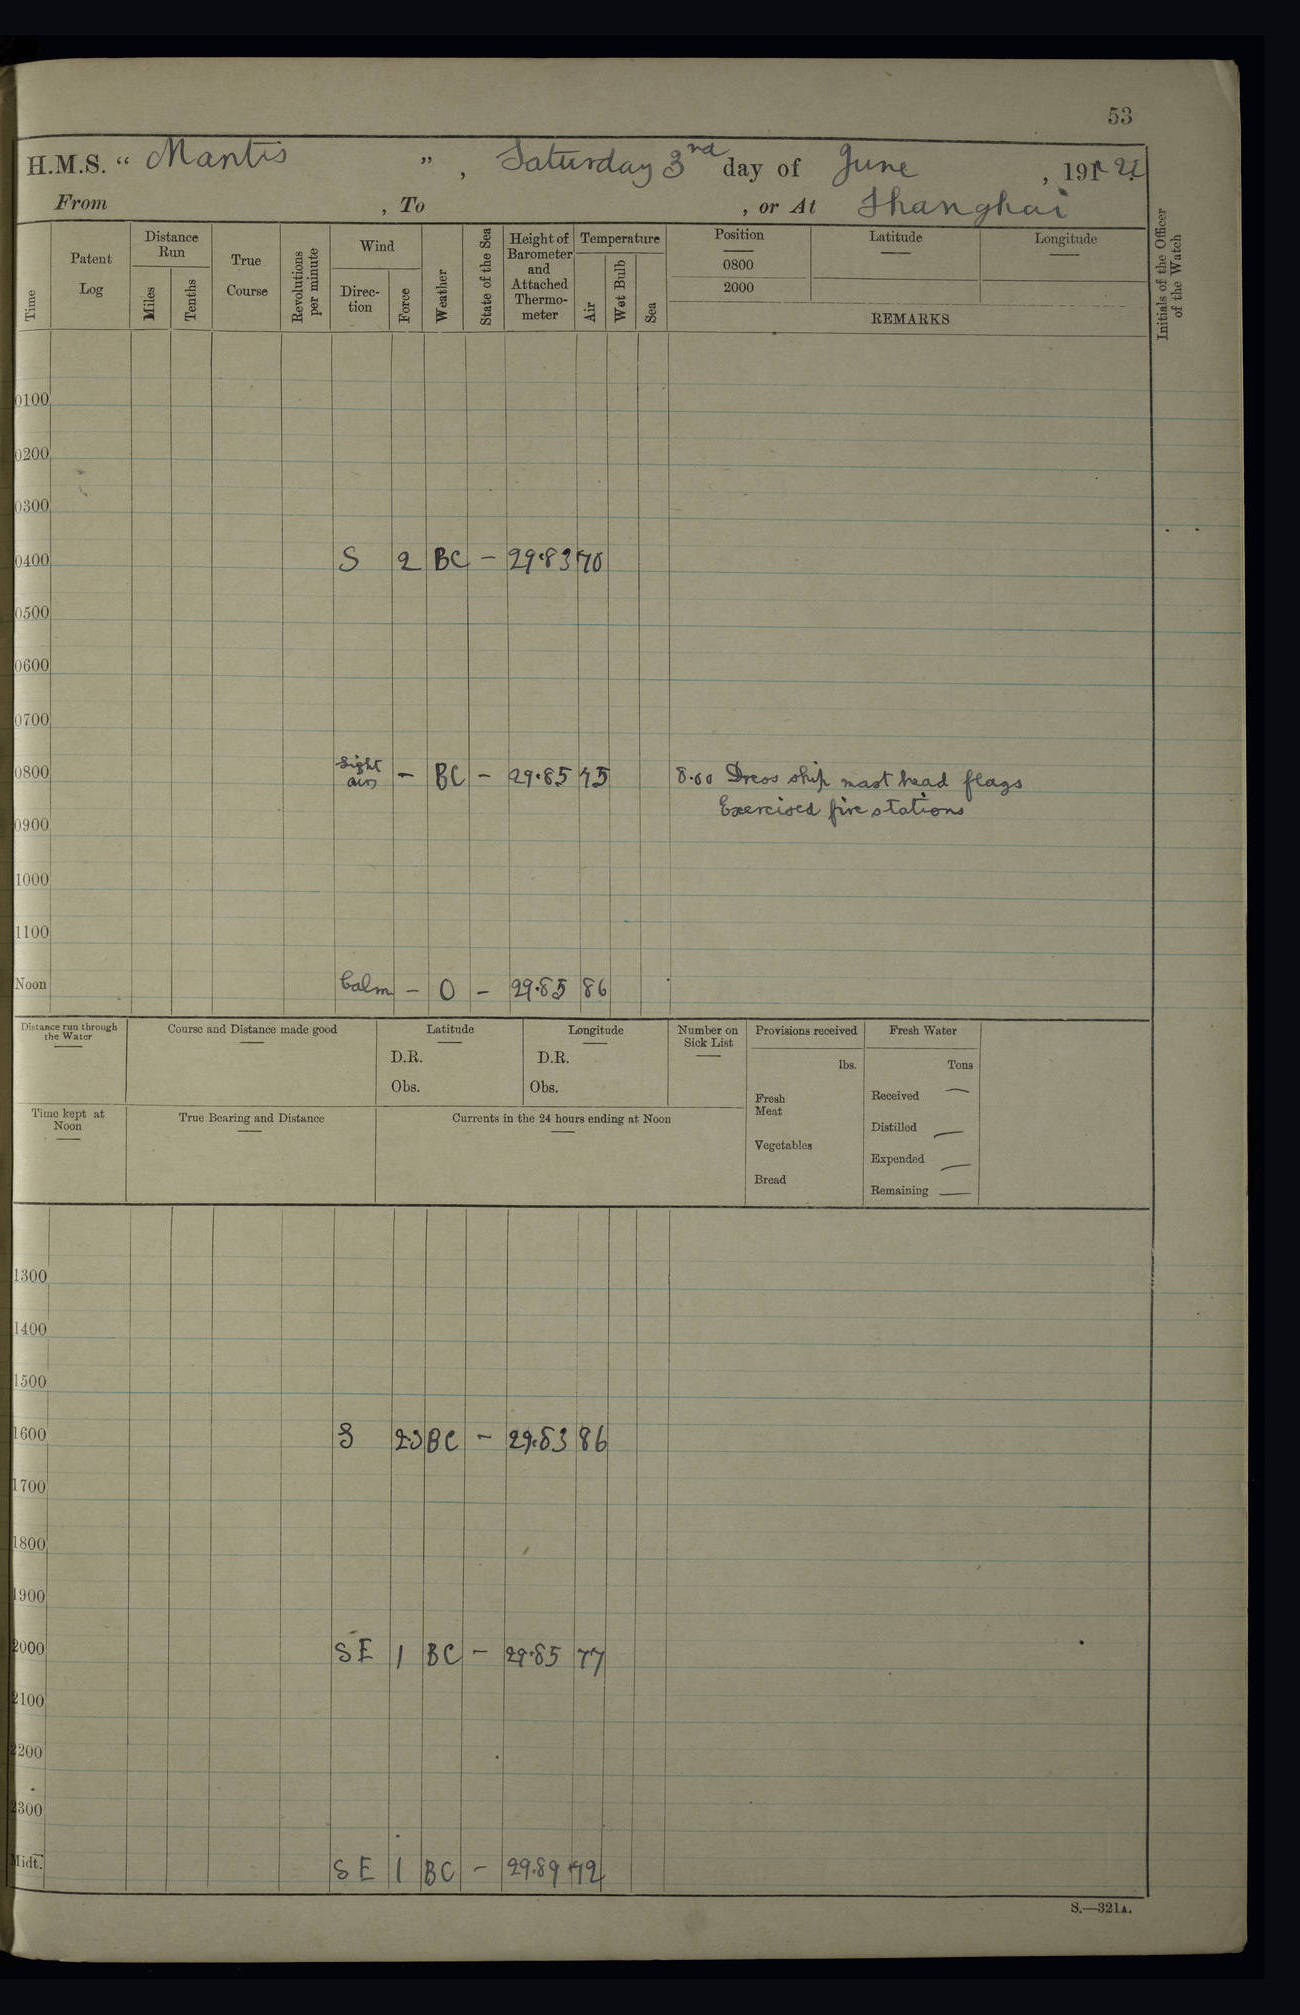 53
H.M.S. “ Mantis ”, Saturday 3rd day of June, 1922
From , To , or At Shanghai
Time
Patent Log
Distance Run
Miles
Tenths
True Course
Revolutions per minute
Wind
Direc-tion
Force
Weather
State of the Sea
Height of Barometer and Attached Thermo-meter
Temperature
Air
Wet Bulb
Sea
Position
Latitude
Longitude
0800
2000
REMARKS
Initials of the Officer of the Watch
0100
0200
0300
0400 S 2 BC – 29.83 70
0500
0600
0700
0800 Light airs – BC – 29.85 75 8.00 Dress ship mast head flags
Exercised fire stations
0900
1000
1100
Noon Calm – O – 29.85 86
Distance run through the Water
Course and Distance made good
Latitude
D.R.
Obs.
Longitude
D.R.
Obs.
Number on Sick List
Provisions received
lbs.
Fresh Meat
Vegetables
Bread
Fresh Water
Tons
Received —
Distilled —
Expended —
Remaining —
Time kept at Noon
True Bearing and Distance
Currents in the 24 hours ending at Noon
1300
1400
1500
1600 S 2.3 BC – 29.83 86
1700
1800
1900
2000 SE 1 BC – 29.85 77
2100
2200
2300
Midt. SE 1 BC – 29.89 72
S.—321A.